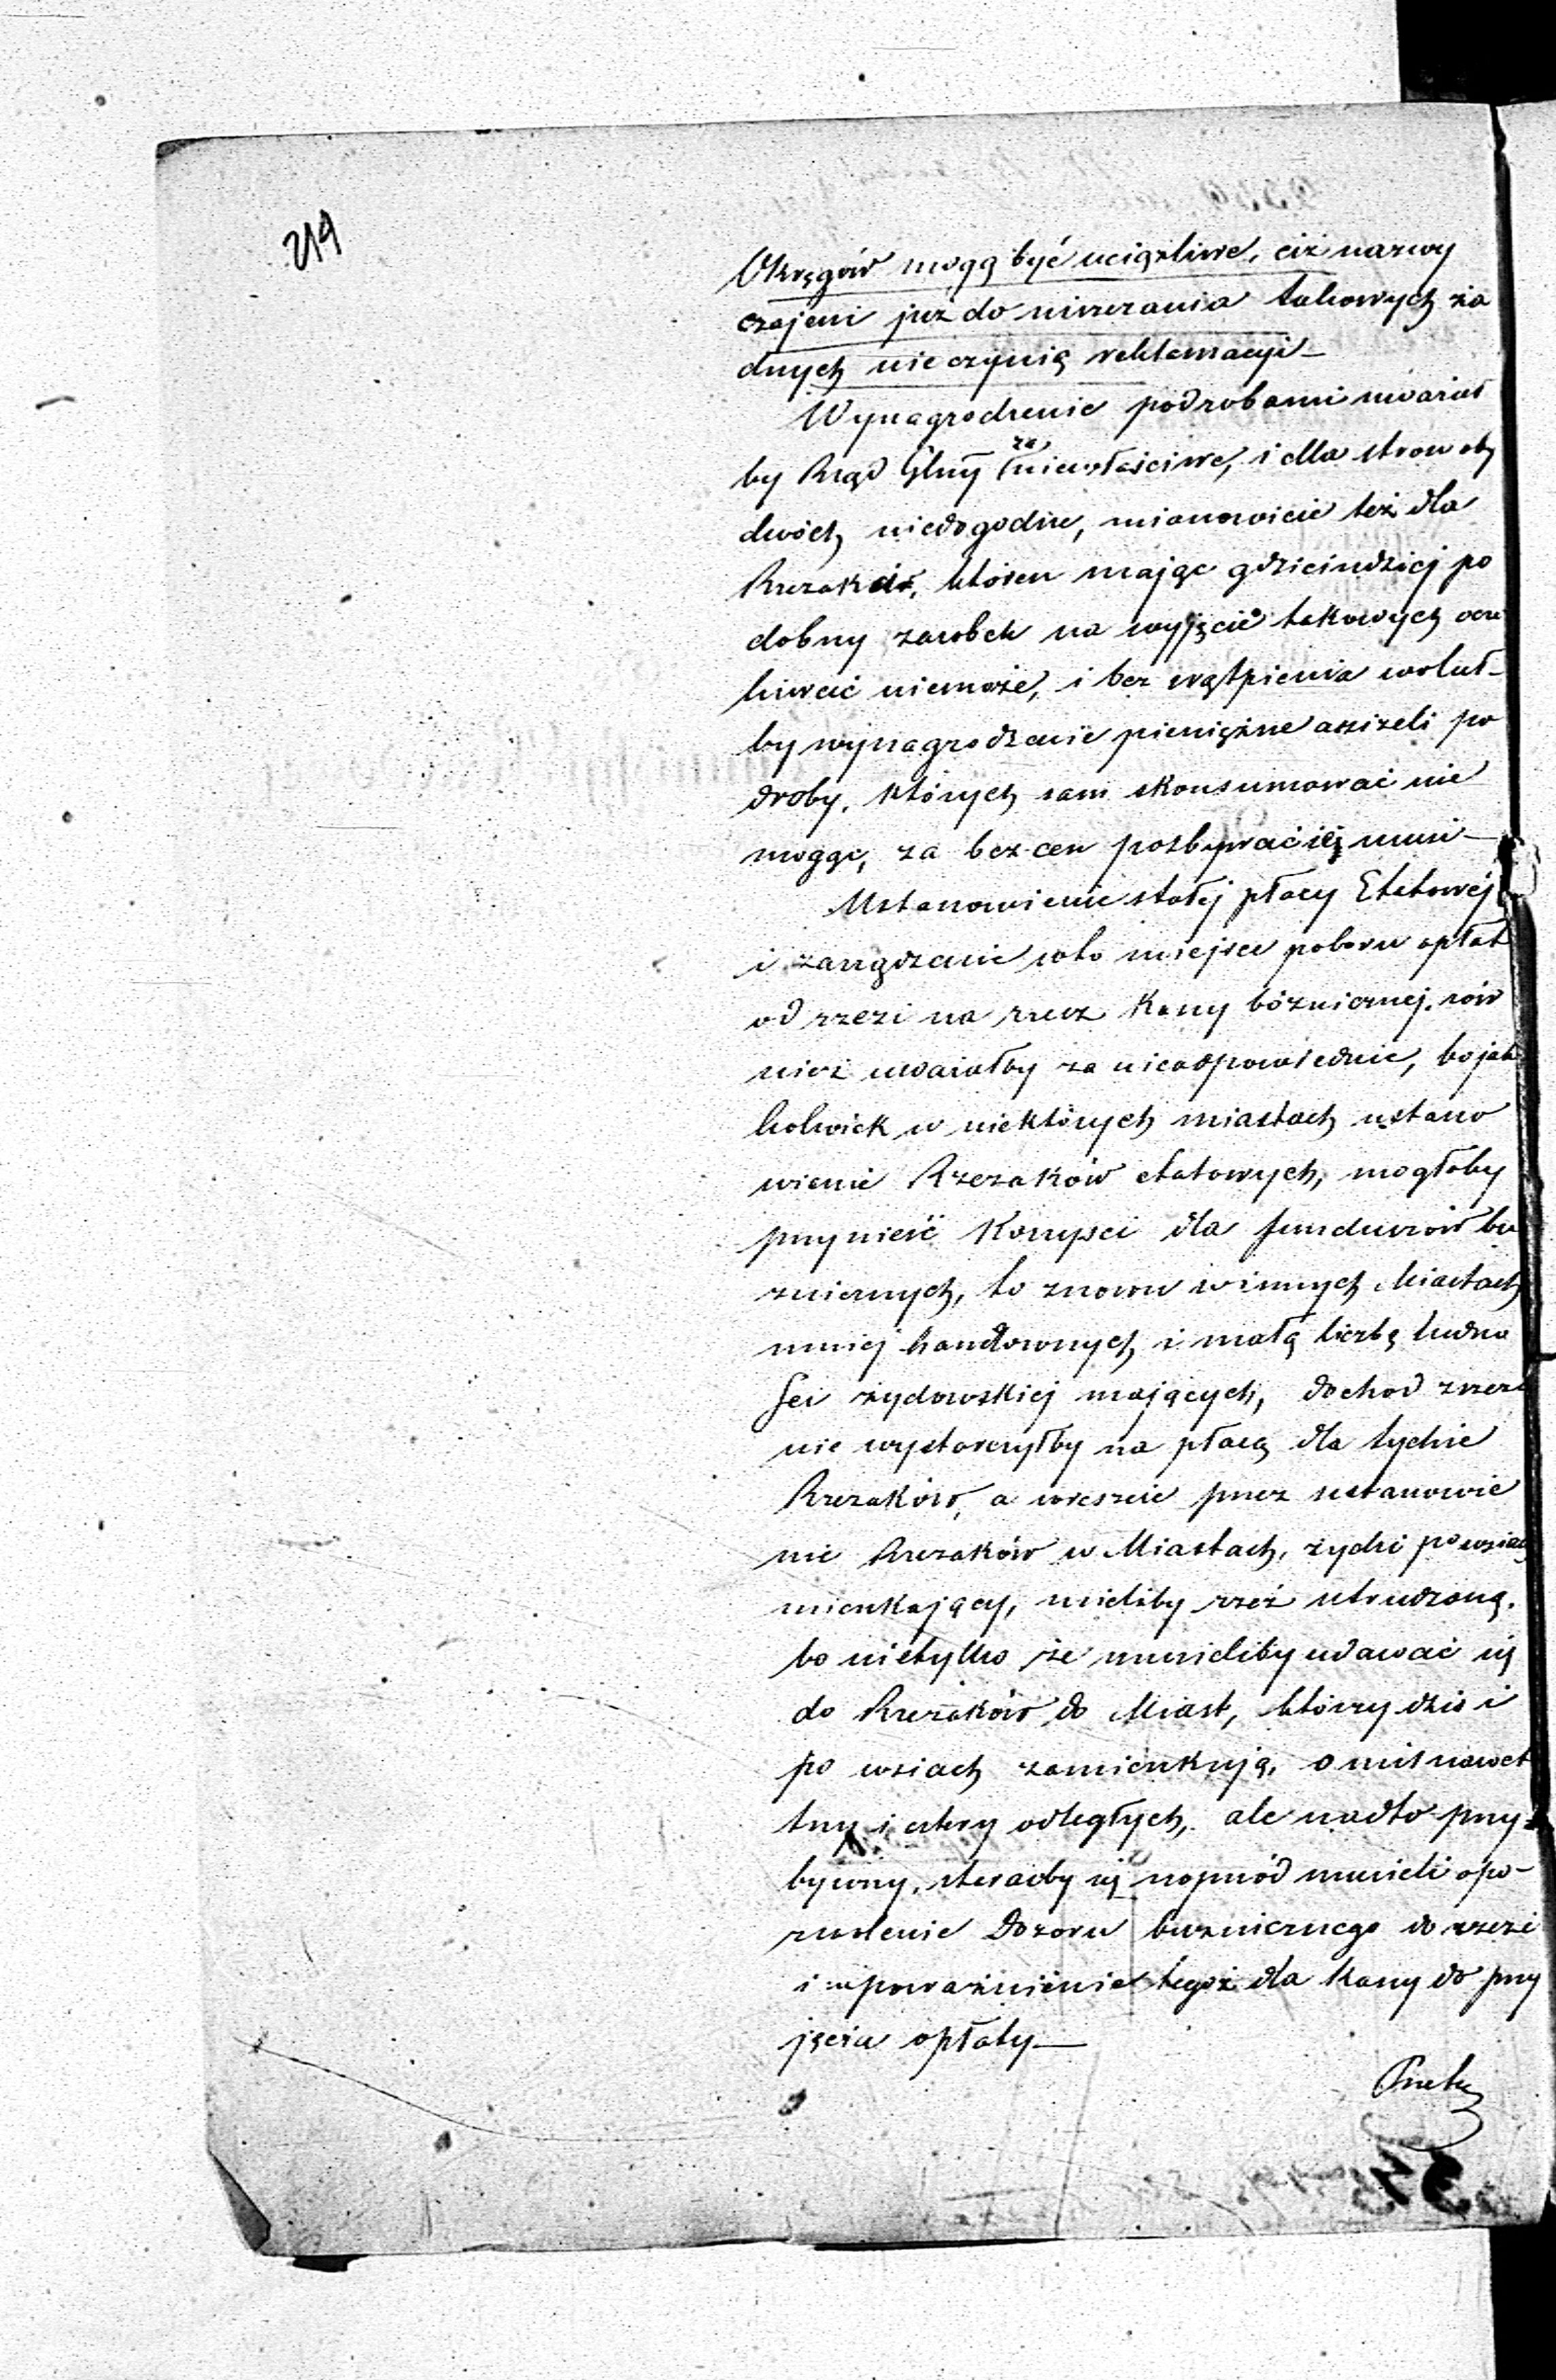 219
Okręgów mogą być uciążliwe, ciż nazwy
czajeni już do uiszczania takowych ża
dnych nie czynią reklamacyi –
Wynagrodzenie podrobami uważał
by Rząd Glny za niewłaściwe, i dla stron oby
dwóch niedogodne, mianowicie też dla
Rzezaków, któren mając gdzieindziej po
dobny zarobek na wyjęcie takowych ocze
kiwać niemoże, i bez wątpienia wolał-
by wynagrodzenie pieniężne aniżeli po
droby, których sam skonsumować nie
mogąc, za bezcen pozbywać się musi –
Ustanowienie stałej płacy Etatowéj
i zarządzenie wto miejsce poboru opłat
od rzezi na rzecz Kassy bóżnicznej, rów
nież uważałby za nieodpowiednie, bo jak
kolwiek w niektórych miastach ustano
wienie Rzezaków etatowych, mogłoby
przynieść Korzyści dla funduszów bu
zniczych, to znowu w innych Miastach
mniej handlownych, i małą liczbę ludno
ści żydowskiej mających, dochod zrzezi
nie wystarczyłby na płacę dla tychże
Rzezaków, a wreszcie przez ustanowie
nie Rzezaków w Miastach, żydzi po wsiach
mieszkający, mieliby rzeź utrudzoną,
bo nietylko że musieliby udawać się
do Rzezaków do Miast, którzy dziś i
po wsiach zamieszkują, o mil nawet
trzy i cztery odległych, ale nadto przy-
bywszy, starać by się naprzód musieli o po-
zwolenie Dozoru buzniczego do rzezi
i upoważnienie tegoż dla Kassy do przy
jęcia opłaty –